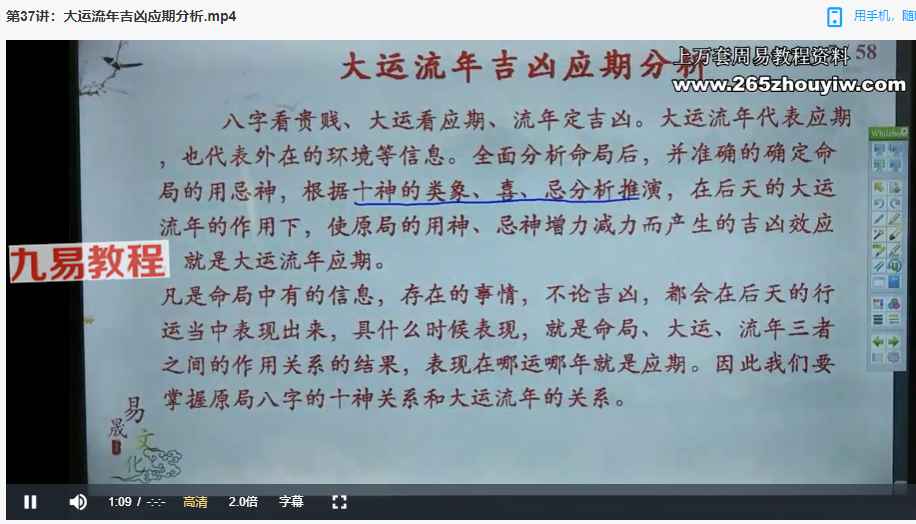 第37讲：大运流年吉凶应期分析.mp4
用手机，随
大运流年吉凶应期分析
58
上万套周易教程资料
www.265zhouyiw.com
八字看贵贱、大运看应期、流年定吉凶。大运流年代表应期
，也代表外在的环境等信息。全面分析命局后，并准确的确定命
局的用忌神，根据十神的类象、喜、忌分析推演，在后天的大运
流年的作用下，使原局的用神、忌神增力减力而产生的吉凶效应
就是大运流年应期。
九易教程
凡是命局中有的信息，存在的事情，不论吉凶，都会在后天的行
运当中表现出来，具什么时候表现，就是命局、大运、流年三者
之间的作用关系的结果，表现在哪运哪年就是应期。因此我们要
掌握原局八字的十神关系和大运流年的关系。
易晟文化
1:09 / -:-:-
高清
2.0倍
字幕